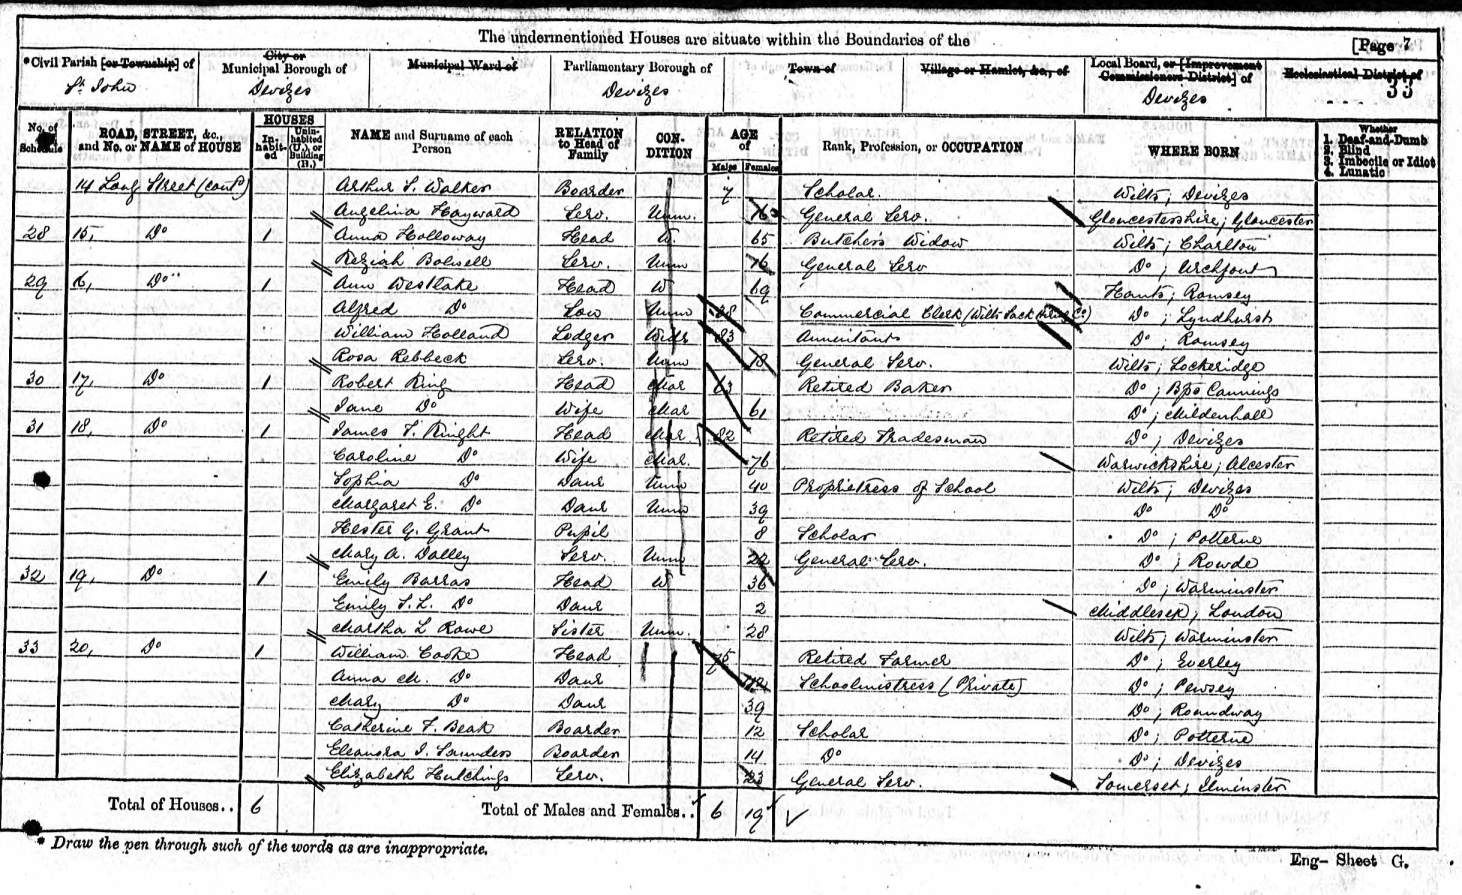 The undermentioned Houses are situate within the Boundaries of the
[Page 7
*Civil Parish [or Township] of
St. John
City or Municipal Borough of
Devizes
Municipal Ward of
Parliamentary Borough of
Devizes
Town of
Village or Hamlet, &c., of
Local Board, or [Improvement Commissioners District] of
Devizes
Ecclesiastical District of
33
No. of Schedule
ROAD, STREET, &c., and No. or NAME of HOUSE
HOUSES
Inhabited
Uninhabited (U.), or Building (B.)
NAME and Surname of each Person
RELATION to Head of Family
CONDITION
AGE of
Males
Females
Rank, Profession, or OCCUPATION
WHERE BORN
Whether
1. Deaf-and-Dumb
2. Blind
3. Imbecile or Idiot
4. Lunatic
14 Long Street (contd) Arthur S. Walker Boarder 7 Scholar Wilts; Devizes
Angelina Hayward Serv. Unm. General Serv. Gloucestershire; Gloucester
28 15, Do 1 Anna Holloway Head W. 65 Butcher's Widow Wilts; Charlton
Keziah Bolwell Serv. Unm 16 General Serv Do; Urchfont
29 16, Do 1 Ann Westlake Head W 69 Hants; Romsey
Alfred Do Son Unm 38 Commercial Clerk (Wilts Sack Hiring Co) Do; Lyndhurst
William Holland Lodger Widr 83 Annuitant Do; Romsey
Rosa Rebbeck Serv. Unm 18 General Serv. Wilts; Lockeridge
30 17, Do 1 Robert King Head Mar 63 Retired Baker Do; Bps Cannings
Jane Do Wife Mar 61 Do; Mildenhall
31 18, Do 1 James S. Knight Head Mar 82 Retired Tradesman Do; Devizes
Caroline Do Wife Mar. 76 Warwickshire; Alcester
Sophia Do Daur Unm 40 Proprietress of School Wilts; Devizes
Margaret E. Do Daur Unm 39 Do Do
Hester G. Grant Pupil 8 Scholar Do; Potterne
Mary A. Dalley Serv. Unm 22 General Serv. Do; Rowde
32 19, Do 1 Emily Barras Head W 36 Do; Warminster
Emily S. L. Do Daur 2 Middlesex; London
Martha L Rowe Sister Unm. 28 Wilts; Warminster
33 20, Do 1 William Cooke Head 75 Retired Farmer Do; Everley
Anna M. Do Daur 42 Schoolmistress (Private) Do; Pewsey
Mary Do Daur 39 Do; Roundway
Catherine F. Beak Boarder 12 Scholar Do; Potterne
Eleanora J. Saunders Boarder 14 Do Do; Devizes
Elizabeth Hutchings Serv. 23 General Serv. Somerset; Ilminster
Total of Houses.. 6 Total of Males and Females.. 6 19
* Draw the pen through such of the words as are inappropriate.
Eng- Sheet G.